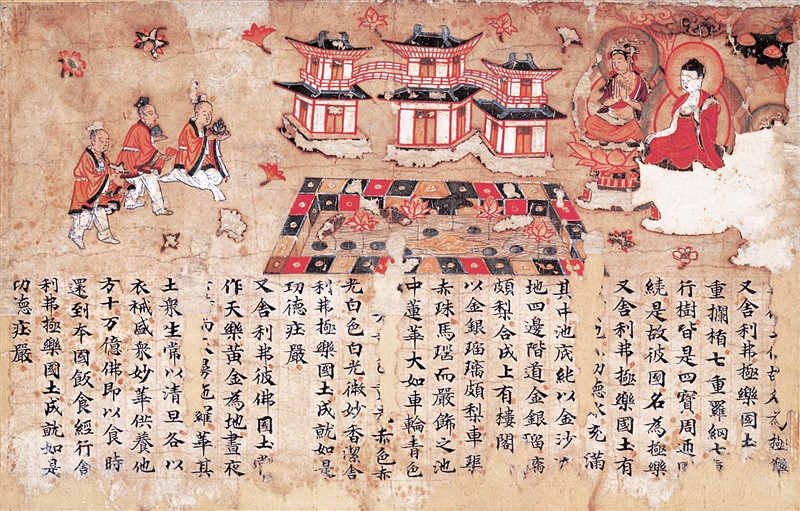 極
又舍利弗極樂國土
重攔楯七重羅網七
行樹皆是四寶周迊
繞是故彼國名為極樂
又舍利弗極樂國土有
充滿
其中池底純以金沙
地四邊階道金銀瑠璃
頗梨合成上有樓閣
以金銀瑠璃頗梨車𤦲
赤珠馬瑙而嚴飾之池
中蓮華大如車輪青色
赤色赤
光白色白光微妙香潔舍
利弗極樂國土成就如是
功德莊嚴
又舍利弗彼佛國土常
作天樂黃金為地晝夜
羅華其
土衆生常以清旦各以
衣裓盛衆妙華供養他
方十万億佛即以食時
還到本國飲食經行舍
利弗極樂國土成就如是
功德莊嚴